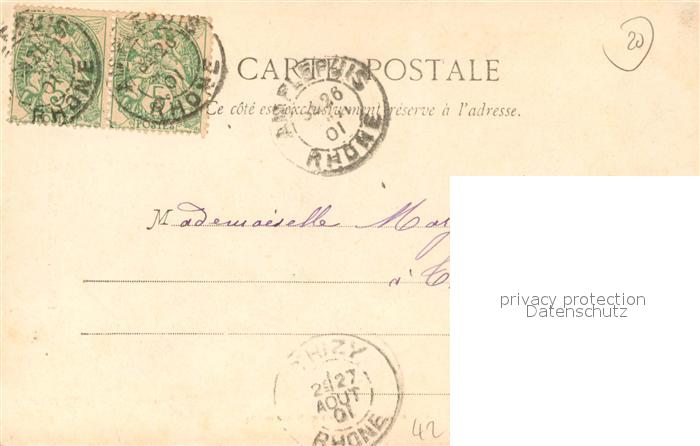 20
CARTE POSTALE
Ce côté est exclusivement réservé à l'adresse.
AMPLEPUIS
26
01
RHONE
RHONE
RHONE
POSTES
Mademoiselle
à
privacy protection
Datenschutz
THIZY
27
AOUT
01
RHONE
42